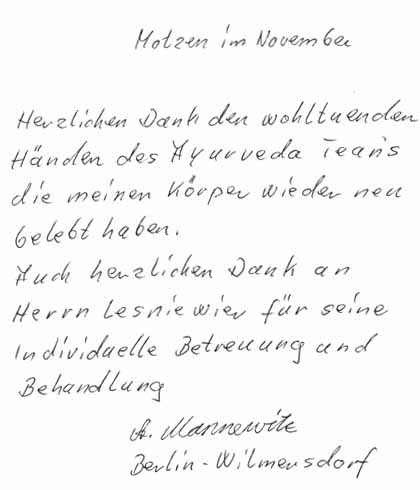 Motzen im November
Herzlichen Dank den wohltuenden
Händen des Ayurveda Teams
die meinen Körper wieder neu
belebt haben.
Auch herzlichen Dank an
Herrn Lesniewier für seine
Individuelle Betreuung und
Behandlung
A. Mannewitz
Berlin-Wilmersdorf